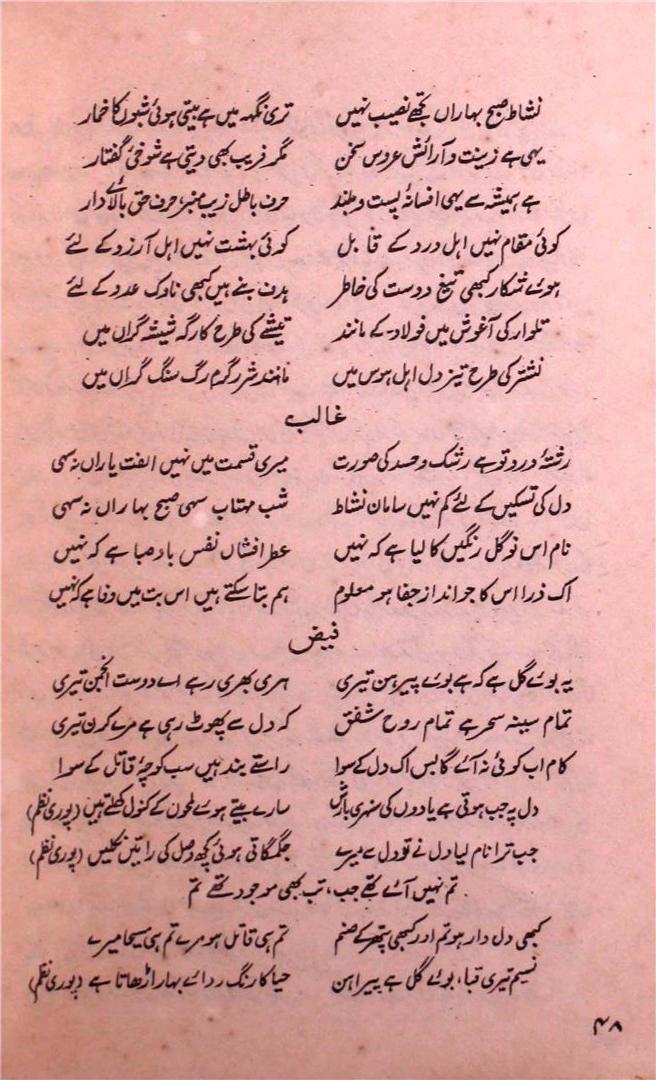 نشاط صبح بہاراں تجھے نصیب نہیں تری نگہہ میں ہے بیتی ہوئی شبوں کا خمار
یہی ہے زینت و آرائش عروس سخن مگر فریب بھی دیتی ہے شوخیٔ گفتار
ہے ہمیشہ سے یہی افسانۂ پست و بلند حرف باطل زیب منبر، حرف حق بالائے دار
کوئی مقام نہیں اہل درد کے قابل کوئی بہشت نہیں اہل آرزو کے لئے
ہوئے شکار کبھی تیغ دوست کی خاطر ہدف بنے ہیں کبھی ناوک عدو کے لئے
تلوار کی آغوش میں فولاد کے مانند تیشے کی طرح کارگہ شیشہ گراں میں
نشتر کی طرح تیز دل اہل ہوس میں مانند شرر گرم رگ سنگ گراں میں
غالب
رشتۂ درد تو ہے رشک و حسد کی صورت میری قسمت میں نہیں الفت یاراں نہ سہی
دل کی تسکیں کے لئے کم نہیں سامان نشاط شب مہتاب سہی صبح بہاراں نہ سہی
نام اس نو گل رنگیں کا لیا ہے کہ نہیں عطر افشاں نفس باد صبا ہے کہ نہیں
اک ذرا اس کا جو انداز جفا ہو معلوم ہم بتا سکتے ہیں اس بت میں وفا ہے کہ نہیں
فیض
یہ بوئے گل ہے کہ ہے بوئے پیرہن تیری ہری بھری رہے اے دوست انجمن تیری
تمام سینہ سحر ہے تمام روح شفق کہ دل سے پھوٹ رہی ہے مرے کرن تیری
کام اب کوئی نہ آئے گا بس اک دل کے سوا راستے بند ہیں سب کوچۂ قاتل کے سوا
دل پہ جب ہوتی ہے یادوں کی سنہری بارش سارے بیتے ہوئے لمحوں کے کنول کھلتے ہیں (پوری نظم)
جب ترا نام لیا دل نے تو دل سے میرے جگمگاتی ہوئی کچھ وصل کی راتیں نکلیں (پوری نظم)
تم نہیں آئے تھے جب، تب بھی موجود تھے تم
کبھی دل دار ہو تم اور کبھی پتھر کے صنم تم ہی قاتل ہو مرے تم ہی مسیحا میرے
نسیم تیری قبا، بوئے گل ہے پیراہن حیا کا رنگ ردائے بہار اڑھاتا ہے (پوری نظم)
۴۸